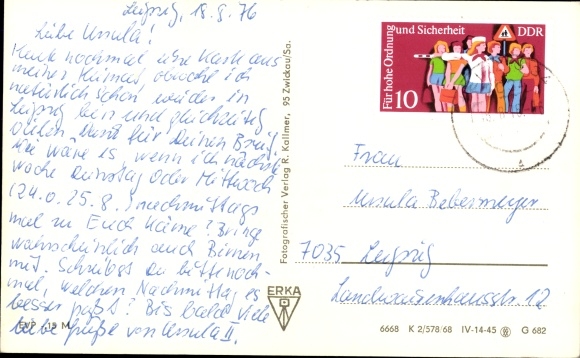 Leipzig, 18.8.76
Liebe Ursula!
Heute nochmal eine Karte aus
meiner Heimat obwohl ich
natürlich schon wieder in
Leipzig bin und gleichzeitig
vielen Dank für Deinen Brief.
Wie wäre es wenn ich nächste
Woche Dienstag oder Mittwoch
(24.o. 25.8.) nachmittags
mal zu Euch käme? Bringe
wahrscheinlich auch Birnen
mit. Schreibst Du bitte noch-
mal, welchen Nachmittag es
besser paßt? Bis bald viele
liebe Grüße von Ursula II.
EVP 15 M
Fotografischer Verlag R. Kallmer, 95 Zwickau/Sa.
ERKA
Für hohe Ordnung und Sicherheit
DDR
10
Frau
Ursula Bebermeyer
7035 Leipzig
Landwaisenhausstr. 12
6668 K 2/578/68 IV-14-45 G 682